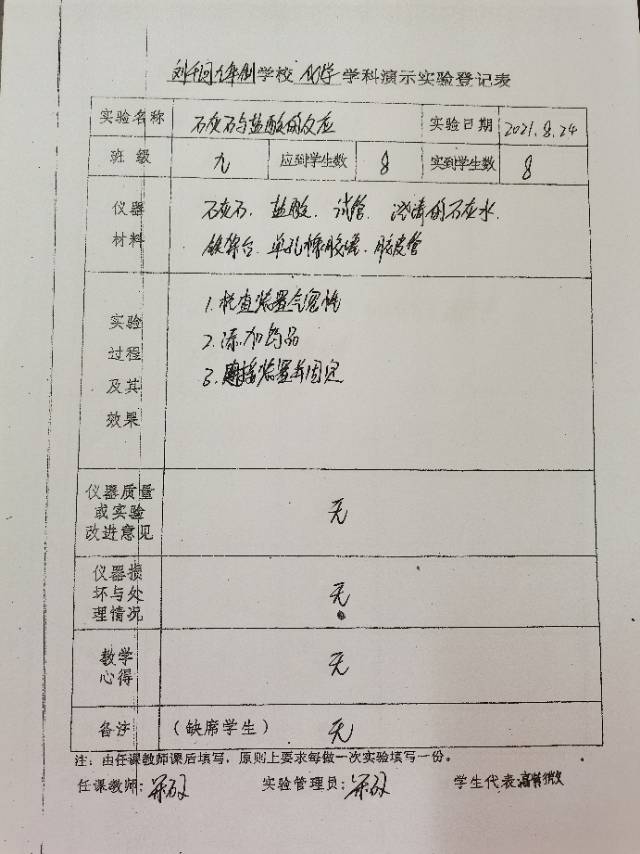 学校 化学 学科演示实验登记表
实验名称 石灰石与盐酸的反应 实验日期 2021.8.24
班级 九 应到学生数 8 实到学生数 8
仪器 石灰石. 盐酸. 试管. 澄清的石灰水.
材料 铁架台. 单孔橡胶塞. 胶皮管
实验 1. 检查装置气密性
过程 2. 添加药品
及其 3. 连接装置并固定
效果
仪器质量
或实验 无
改进意见
仪器损
坏与处 无
理情况
教学 无
心得
备注 （缺席学生） 无
注：由任课教师课后填写，原则上要求每做一次实验填写一份。
任课教师： 实验管理员： 学生代表